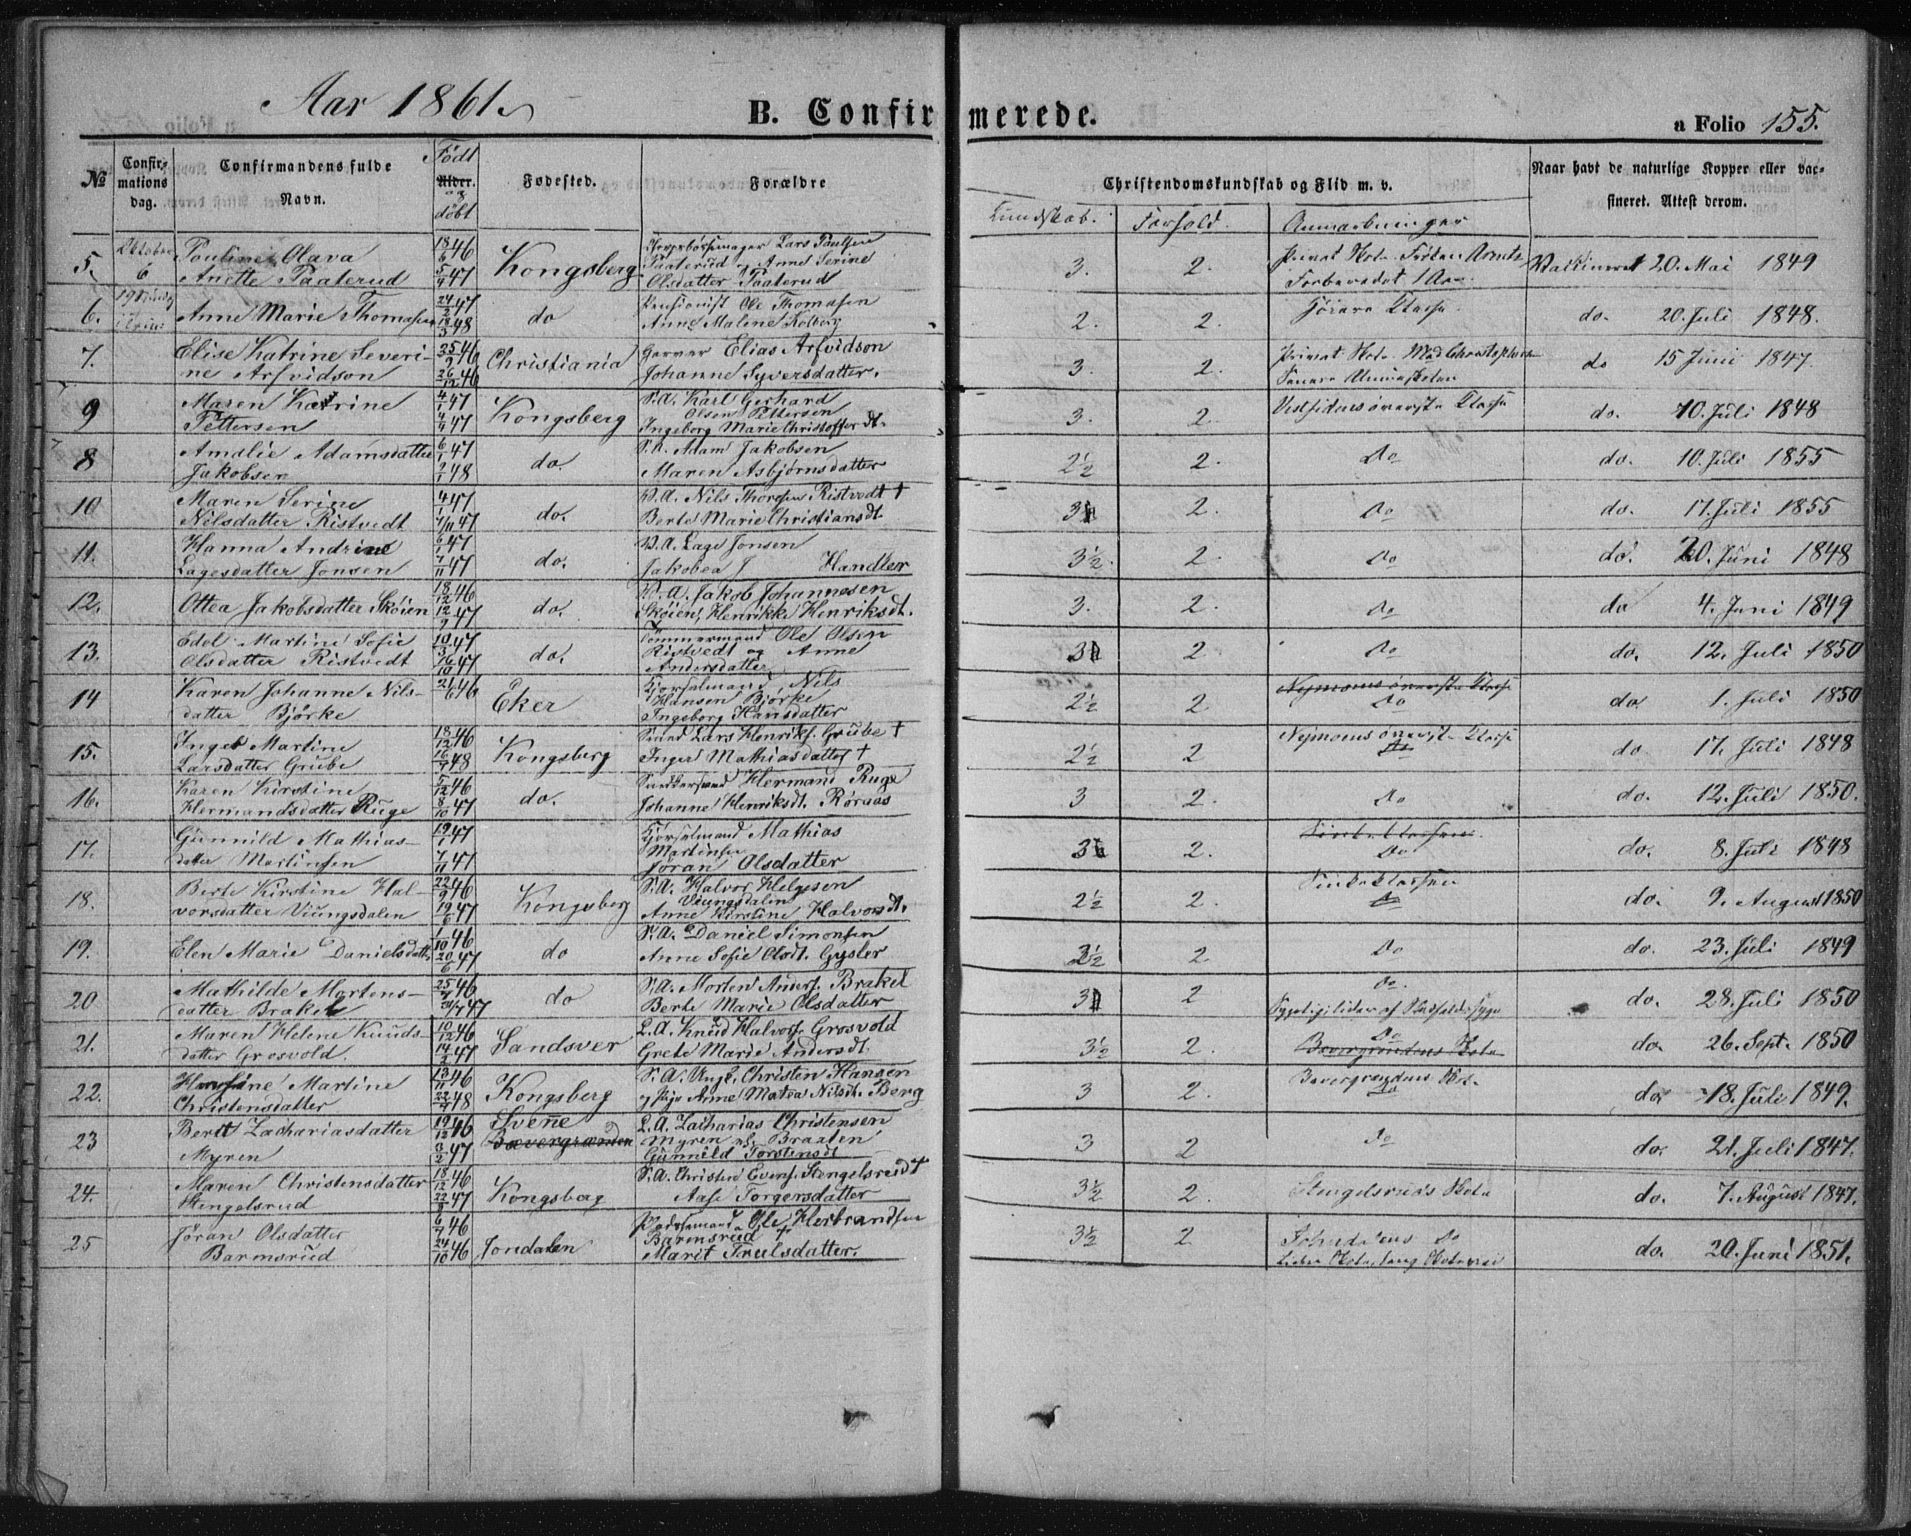 Aar 1861.
B. Confirmerede.
a Folio 155.
No
Confirmations dag.
Confirmandens fulde Navn.
Født
Alder.
og
døbt
Fødested.
Forældre
Christendomskundskab og Flid m. v.
Kundskab.
Forhold.
Anmærkninger
Naar havt de naturlige Kopper eller vaccineret. Attest derom.
5. Oktober 6 Pouline Olava Anette Paaterud 18/6 46 5/4 47 Kongsberg Lars Paulsen Paaterud og Anne Serine Olsdatter Paaterud 3. 2. Privat Vakcineret 20. Mai 1849
6. Anne Marie Thomasen 24/2 47 18/3 48 do Pensionist Ole Thomasen Anne Malene Kolberg 2. 2. do. 20. Juli 1848.
7. Elise Katrine Severine Arfvidson 25/9 46 26/12 46 Christiania Garver Elias Arfvidson Johanne Syversdatter. 3. 2. do 15 Juni 1847.
9 Maren Katrine Pettersen 4/1 47 4/4 47 Kongsberg S.A. Karl Gerhard Olsen Pettersen Ingeborg Marie Christofferdt. 3. 2. Vestsidens øverste Classe do. 10. Juli 1848
8 Amalie Adamsdatter Jakobsen 6/1 47 9/1 48 do. S.A. Adam Jakobsen Maren Asbjørnsdatter 2½ 2. Do do. 10. Juli 1855
10 Maren Serine Nilsdatter Ristvedt 4/1 47 7/11 47 do. B.A. Nils Thorsen Ristvedt † Berte Marie Christiansdt. 3 2. Do do. 17. Juli 1855
11. Hanna Andrine Lagesdatter Jonsen 6/1 47 7/11 47 do. B.A. Lage Jonsen Jakobea J Handler 3½. 2. Do do. 20. Juni 1848
12. Ottea Jakobsdatter Skøien 18/12 46 12/9 47 do. B.A. Jakob Johannesen Skøien, Henrikke Henriksdt. 3. 2. Do do 4. Juni 1849
13. Edel Martine Sofie Olsdatter Ristvedt 10/3 47 16/10 47 do. Tømmermand Ole Olsen Ristvedt og Anne Andersdatter 3 2 Do do. 12. Juli 1850
14 Karen Johanne Nilsdatter Bjørke 21/6 46 Eker Kjørselmand Nils Hansen Bjørke Ingeborg Hansdatter 2½ 2. Nymoens øverste Classe Do do 1. Juli 1850
15. Inger Martine Larsdatter Grube 18/12 46 16/4 48 Kongsberg Lars Henriks. Grube † Inger Mathiasdatter † 2½ 2 Nymoens øverste Classe Do do 17. Juli 1848
16. Karen Kirstine Hermandsdatter Ruge 5/12 46 8/10 47 do. Hermand Ruge Johanne Henriksdt. Røraas 3 2. Do do. 12. Juli 1850.
17. Gunnild Mathiasdatter Martinsen 19/1 47 7/11 47 Kjørselmand Mathias Martinsen Jøran Olsdatter 3 2. Do do. 8. Juli 1848
18. Berte Kirstine Halvorsdatter Viungsdalen 22/9 46 19/6 47 Kongsberg S.A. Halvor Helgesen Viungsdalen Anne Kirstine Halvorsdt. 2½ 2. Do do. 9. August 1850
19. Elen Marie Danielsdatter 1/10 46 20/6 47 do S.A. Daniel Simonsen Anne Sofie Olsdt. Gysler 3½ 2 Do do. 23. Juli 1849
20 Mathilde Mortensdatter Brakel 25/7 46 31/7 47 do S.A. Morten Anders. Brakel Berte Marie Olsdatter 3 2 Do. do. 28. Juli 1850
21. Maren Helene Knudsdatter Grosvold. 10/12 46 14/2 47 Sandsver L.A. Knud Halvors. Grosvold Grete Marie Andersdt. 3½ 2. Do Bævergrændens Skole do. 26. Sept. 1850
22. Hansine Martine Christensdatter 13/11 46 22/4 48 Kongsberg S.A. Ungk. Christen Hansen og Pige Anne Matea Nilsdt. Berg 3 2. Bævergrændens Skole Do do. 18. Juli 1849.
23 Berit Zachariasdatter Myren 19/12 46 3/2 47 Svene Bævergrænden L.A. Zacharias Christensen Myren Braaten Gunnild Torstensdt 3 2 Do do. 21. Juli 1847.
24. Maren Christensdatter Stengelsrud 18/12 46 22/8 47 Kongsberg S.A. Christen Evens. Stengelsrud † Aase Torgersdatter 3½ 2. Stengelsruds Skole do. 7. August 1847.
25 Jøran Olsdatter Barmsrud 6/7 46 24/10 46 Jondalen Ole Herbrandsen Barmsrud † Marit Trulsdatter. 3½ 2 Jondalens Do do. 20. Juni 1851.